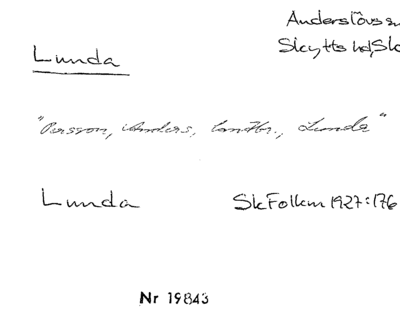 Anderslövs sn
Skytts hd, Sk
Lunda
"Persson, Anders, landtbr., Lunda"
Lunda SkFolkm 1927:176
Nr 19843